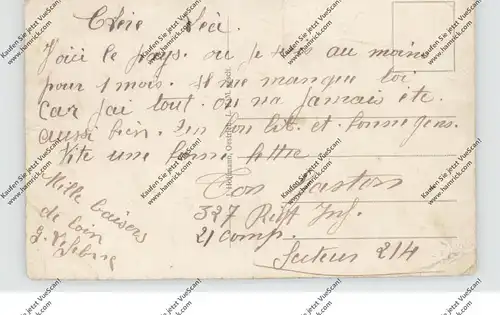 Chère Léa.
Voici le pays. ou je suis au moins
pour 1 mois. il me manque toi
car j'ai tout. on na jamais ete
aussi bien. Un bon lit. et bonne gens.
Vite une bonne lettre
Mille baisers
de loin
Ton Gaston
327 Regt Inf.
21 comp.
Secteur 214
Kaufen Sie jetzt mit VueScan!
www.hamrick.com